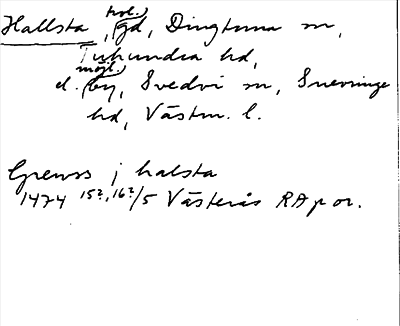 Hallsta, (trol.) gd, Dingtuna sn,
Tuhundra hd,
el. (möjl.) by, Svedvi sn, Snevringe
hd, Västm. l.
Grenss j halsta
1474 15?, 16?/5 Västerås RAp or.